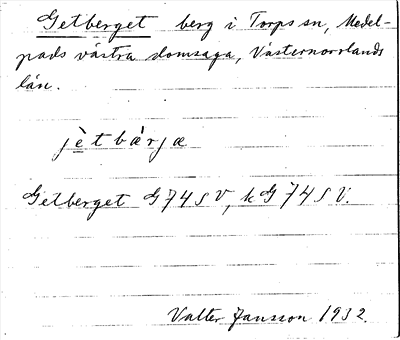 Getberget berg i Torps sn, Medel-
pads västra domsaga, Västernorrlands
län.
jètbærjæ
Getberget G 74 SV, kG 74 SV.
Valter Jansson 1932.